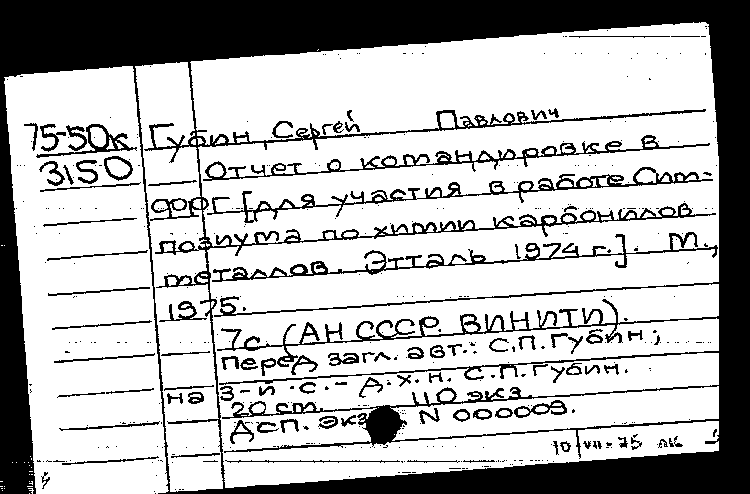 75-50к Губин, Сергей Павлович
3150 Отчет о командировке в
ФРГ [для участия в работе Сим-
позиума по химии карбонилов
металлов. Этталь. 1974 г.]. М.,
1975.
7с. (АН СССР. ВИНИТИ).
Перед загл. авт.: С.П. Губин;
на 3-й с. - д.х.н. С.П. Губин.
20 cm. 110 экз.
Дсп. экз. N 000009.
10/VII-75